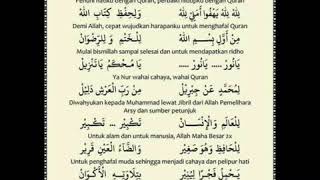 Penuhi hatiku dengan Quran, perbaiki hidupku dengan Quran
لِلهِ لِلهِ يَهْفُو أَمَلِي لِلهِ وَلِحِفْظِ كِتَابِ اللهِ
Demi Allah, cepat wujudkan harapanku untuk menghafal Quran
مِنْ أَوَّلِ بِسْمِ اللهِ لِلْخَتْمِ وَلِلرِّضْوَانِ
Mulai bismillah sampai selesai dan untuk mendapatkan ridho
يَا نُوْرُ ..... يَانُوْرُ ..... يَا مُحْكَمُ يَاتَنْزِيْلُ
Ya Nur wahai cahaya, wahai Quran
لِمُحَمَّدٍ عَنْ جِبْرِيْلَ مِنْ رَبِّ الْعَرْشِ دَلِيْلٌ
Diwahyukan kepada Muhammad lewat Jibril dari Allah Pemelihara
Arsy dan sumber petunjuk
لِلْعَالَمِ وَالْإِنْسَانِ تَكْبِيْر ... تَكْبِيْر
Untuk alam dan untuk manusia, Allah Maha Besar 2x
لِلْحَافِظِ وَهُوَ صَغِيْر وَالضَّاءُ الْعَيْنِ قَرِيْر
Untuk penghafal muda sehingga menjadi cahaya dan pelipur hati
يَحْمِلُ فَجْرًا لِيُنِيْرَ بِتِلَاوَتِهِ الْأَكْوَانَ